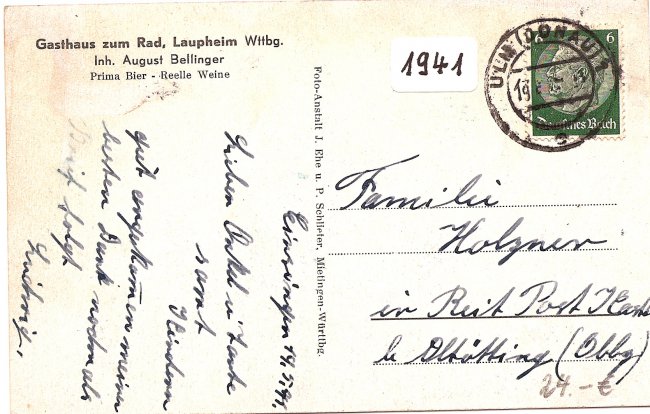 Gasthaus zum Rad, Laupheim Wttbg.
Inh. August Bellinger
Prima Bier - Reelle Weine
1941
ULM (DONAU)
6
Deutsches Reich
Foto-Anstalt J. Ehe u. P. Schlieter, Mietingen-Württbg.
Einsingen
Lieben Onkel u. Tante
samt
Kindern
gut angekommen meinen
besten Dank nochmals
Brief folgt
Ludwig.
Familie
Holzner
in Reit Post
b. Altötting (Obby)
24.-€